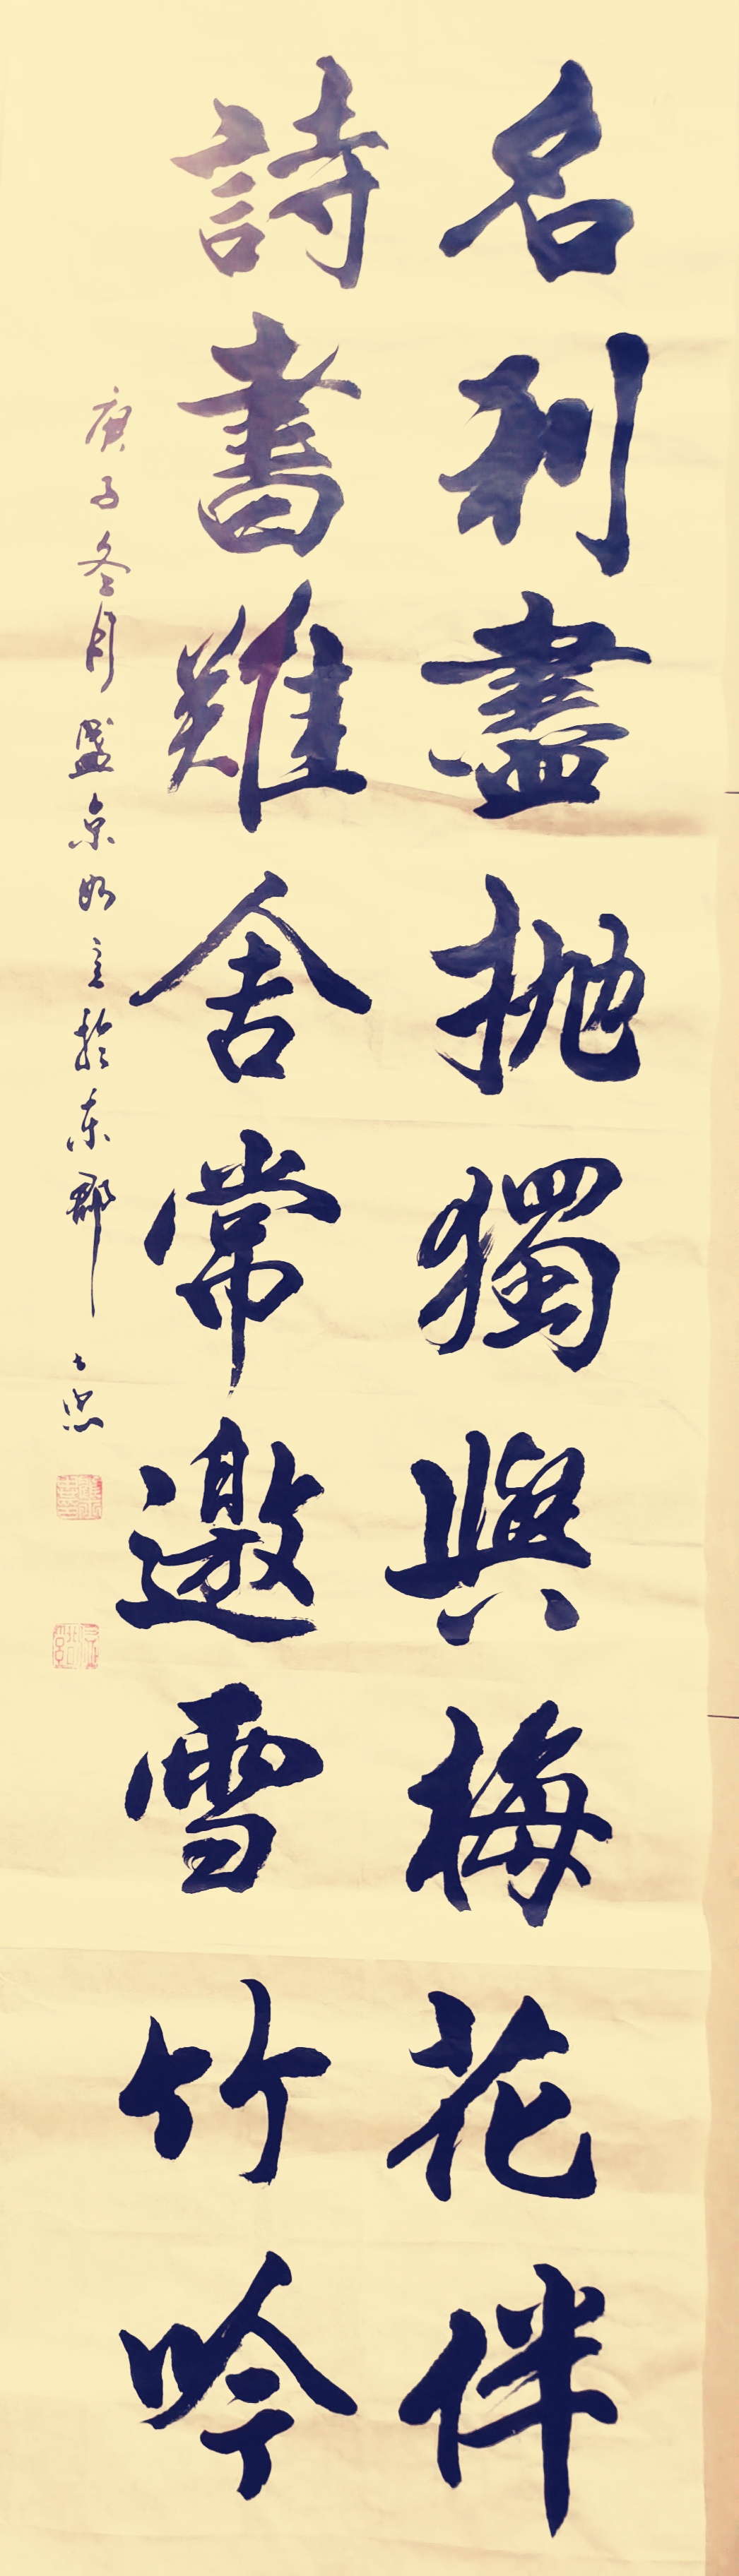 名利盡拋獨與梅花伴
詩書難舍常邀雪竹吟
庚子冬月盛京
於東郡